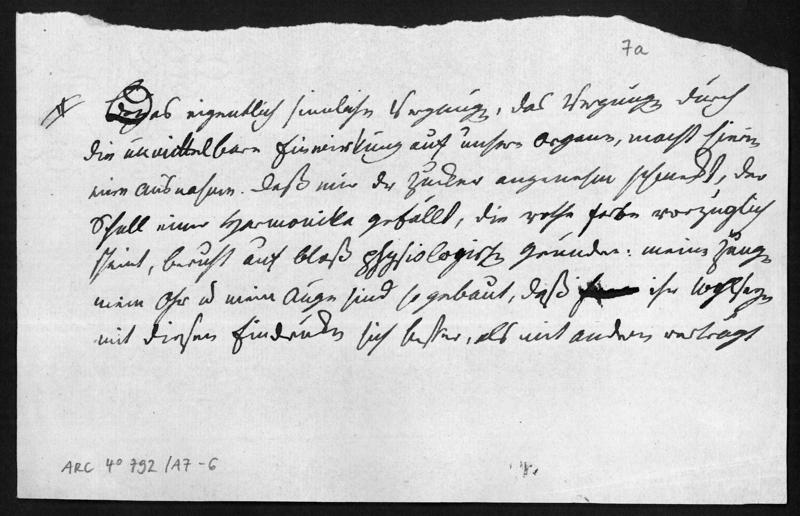 7a
# Das eigentlich sinnliche Vergnügen, das Vergnügen durch
die unmittelbare Einwirkung auf unsere Organe, macht hierin
eine Ausnahme. Daß mir der Zucker angenehm schmeckt, der
Schall einer Harmonika gefällt, die rothe Farbe vorzüglich
scheint, beruht auf bloß physiologischen Gründen: meine Zunge
mein Ohr u mein Auge sind so gebaut, daß ihr Wohlseyn
mit diesen Eindrücken sich besser, als mit andern verträgt
ARC 4° 792 /A7-6